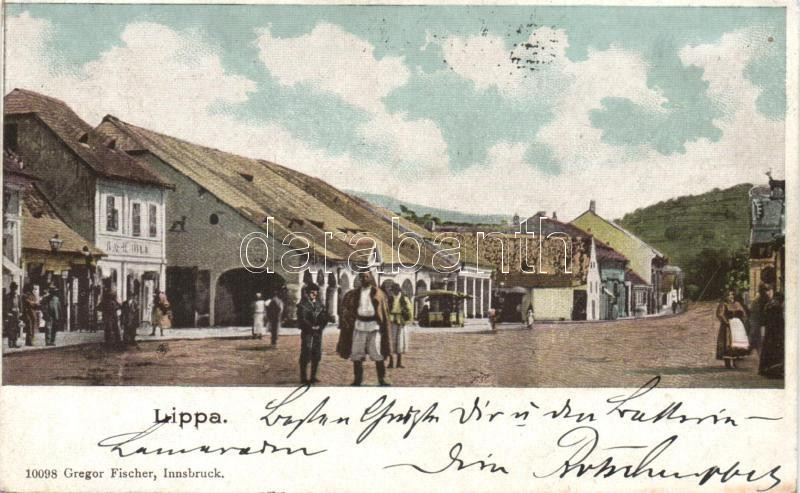 darabanth
Lippa.
Besten Grüße Dir u den Batterie-
kameraden
Dein
10098 Gregor Fischer, Innsbruck.